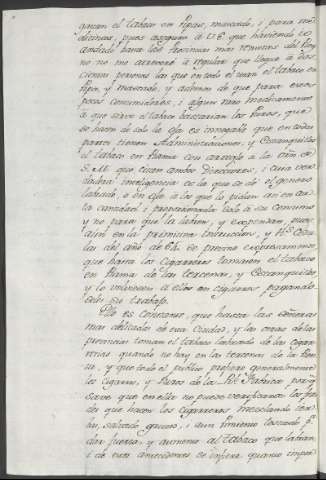 gastan el tabaco en Pipas, mascado, i para me
dicinas, pues aseguro à V.E. que haviendo yo
andado todas las Provincias mas remotas del Rey
no no me atreveré à regular que llegue a dos
cientas personas las que en todo el usan el tabaco en
Pipa, y mascado, y ademas de que para estos
pocos consumidores, i algun raro medicamento
à que sirve el tabaco bastarian los Puros, que
se hacen de solo la oja es innegable que en todas
partes tienen Administraciones, y Estanquillos
el tabaco en Rama con arreglo a la orn de
S.M. que citan ambos Directores, i cuia ver
dadera inteligencia es la que se dé el genero
labrado, o en oja à los que lo pidan asi en cor
ta cantidad, i proporcionada solo à su consumo
y no para que la labren, y expendan, pues
aun en la primitiva Instruccion, y Rs. Cedu
las del año de 64. se previno expresamente
que hasta los Cigarreros tomasen el tabaco
en Rama de las tercenas, y Estanquillos
y lo volviesen à ellos en cigarros, pagando
seles su trabajo.
Ello es constante, que hasta las señoras
mas delicadas de esta Ciudad, y las otras de las
provincias toman el tabaco labrado de las cigar
reras quando no hay en las tercenas de la Ren
ta, y que todo el publico prefiere generalmente
los cigarros, y Puros de la Rl. Fabrica porq
save que en ellos no puede verificarse los frau
des que hacen los cigarreros mezclando
salvado grueso, i aun pimiento tostado pa
dar fuerza, y aumento al tabaco que labran
i de estos antecedentes se infiere quanto impor